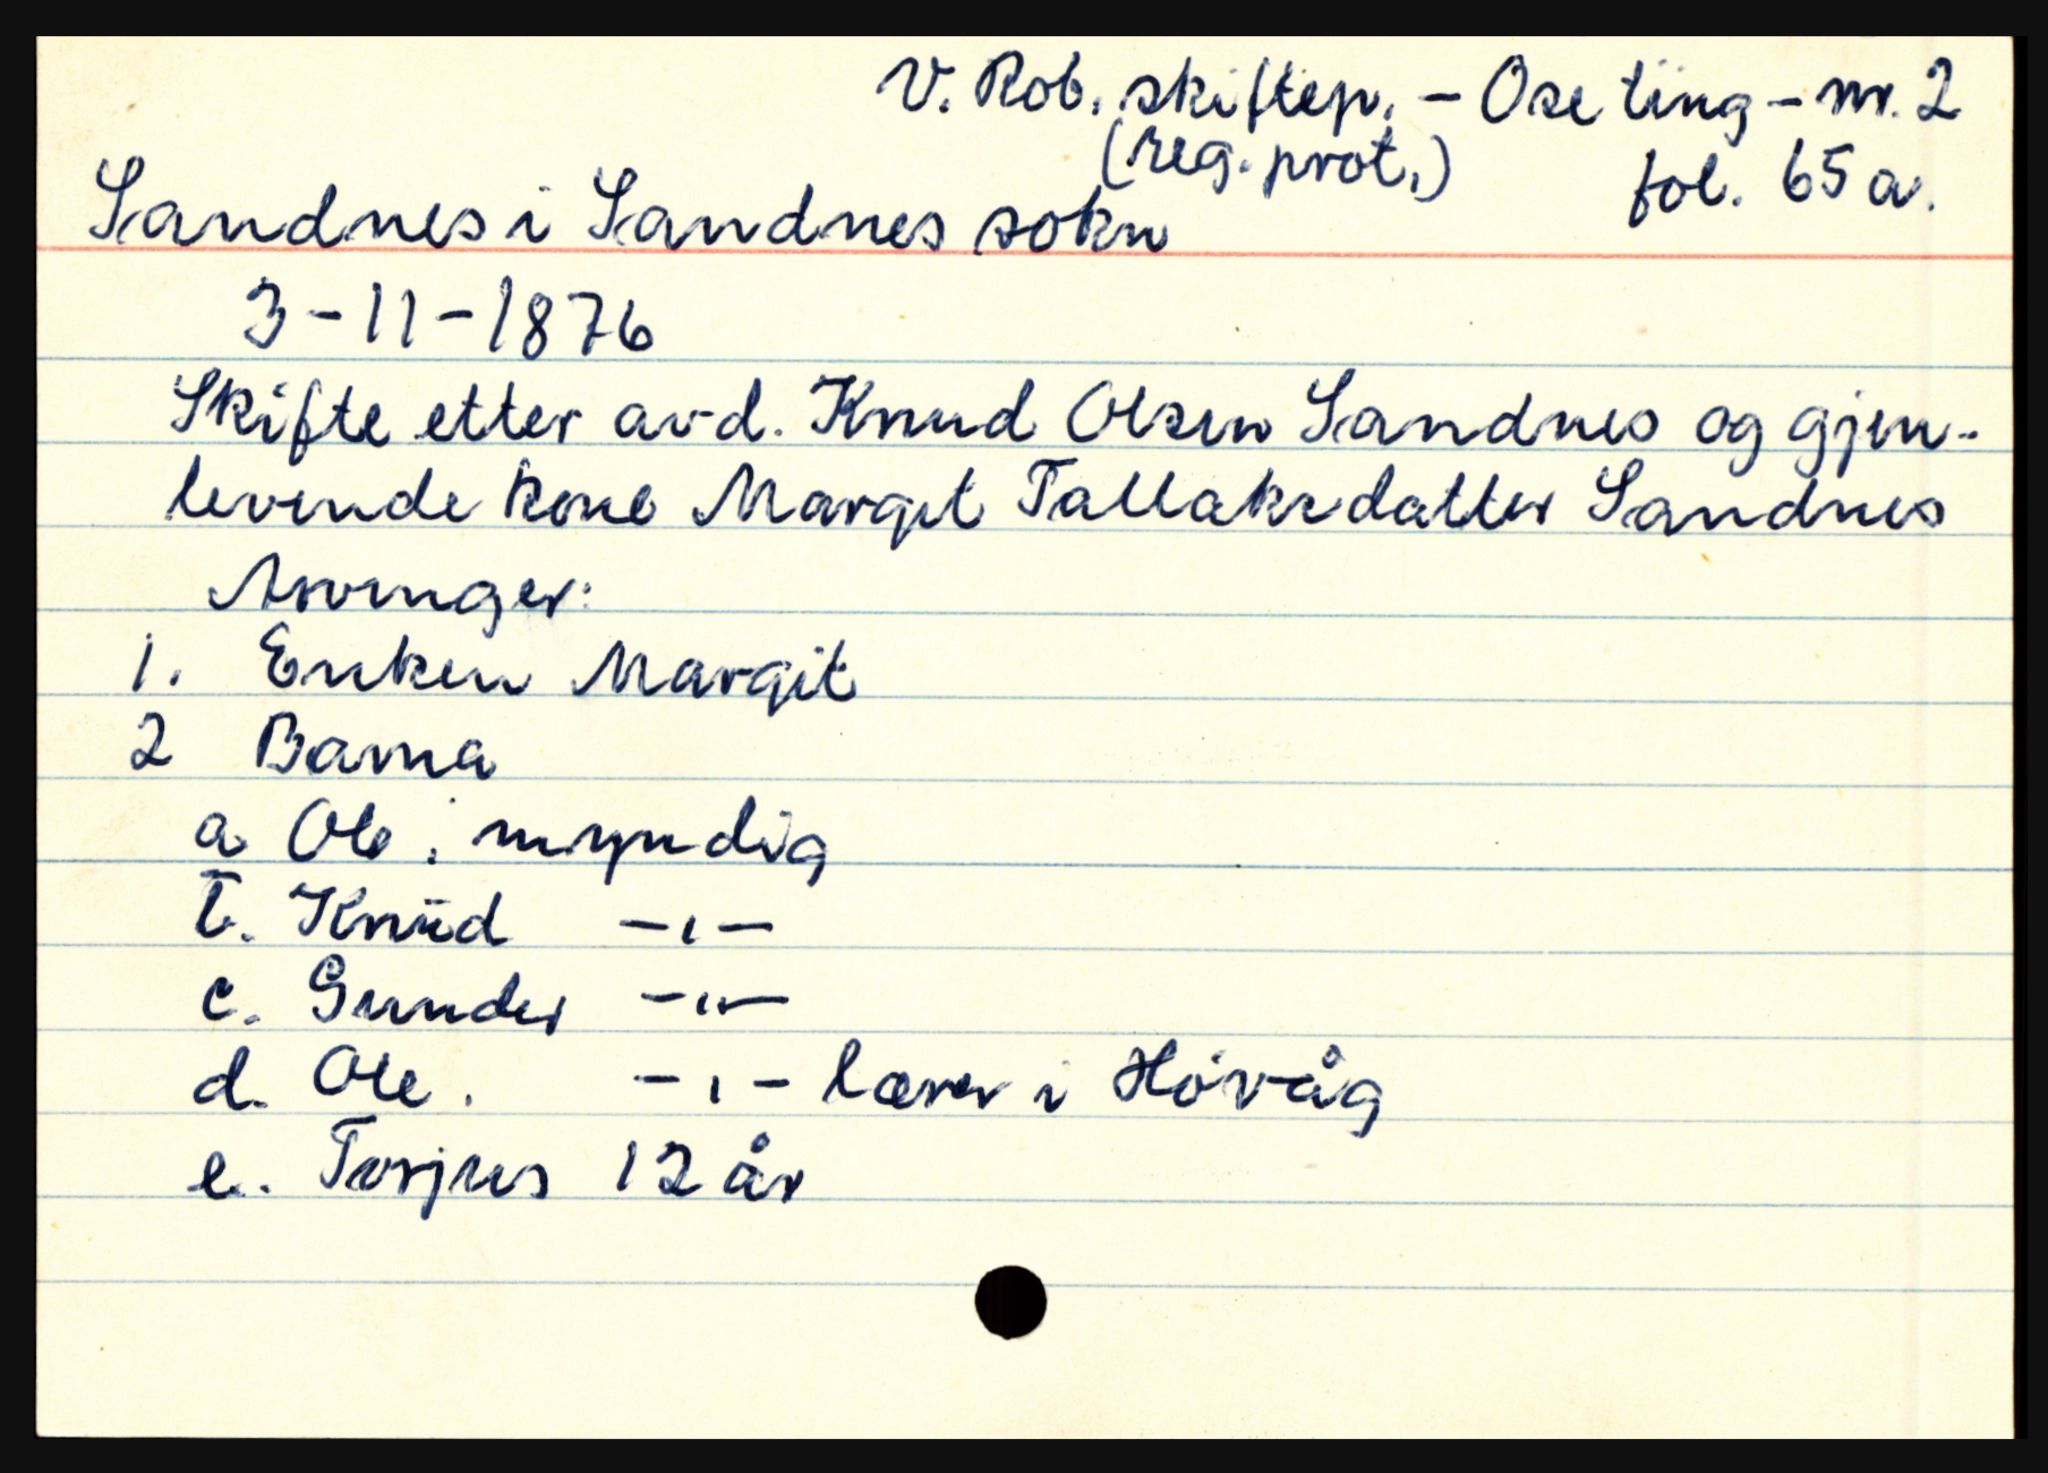 V. Rob. skiftep. - Ose ting - nr. 2
(reg. prot.) fol. 65a.
Sandnes i Sandnes sokn
3-11-1876
Skifte etter avd. Knud Olsen Sandnes og gjen-
levende kone Margit Tallaksdatter Sandnes
Arvinger:
1. Enken Margit
2 Barna
a Ole, myndig
b. Knud -"-
c. Gunder -"-
d. Ole. -"- lærer i Høvåg
e. Torjus 12 år